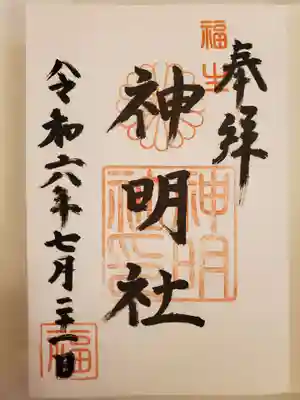 奉拝
福生
神明社
神明
令和六年七月二十一日
福